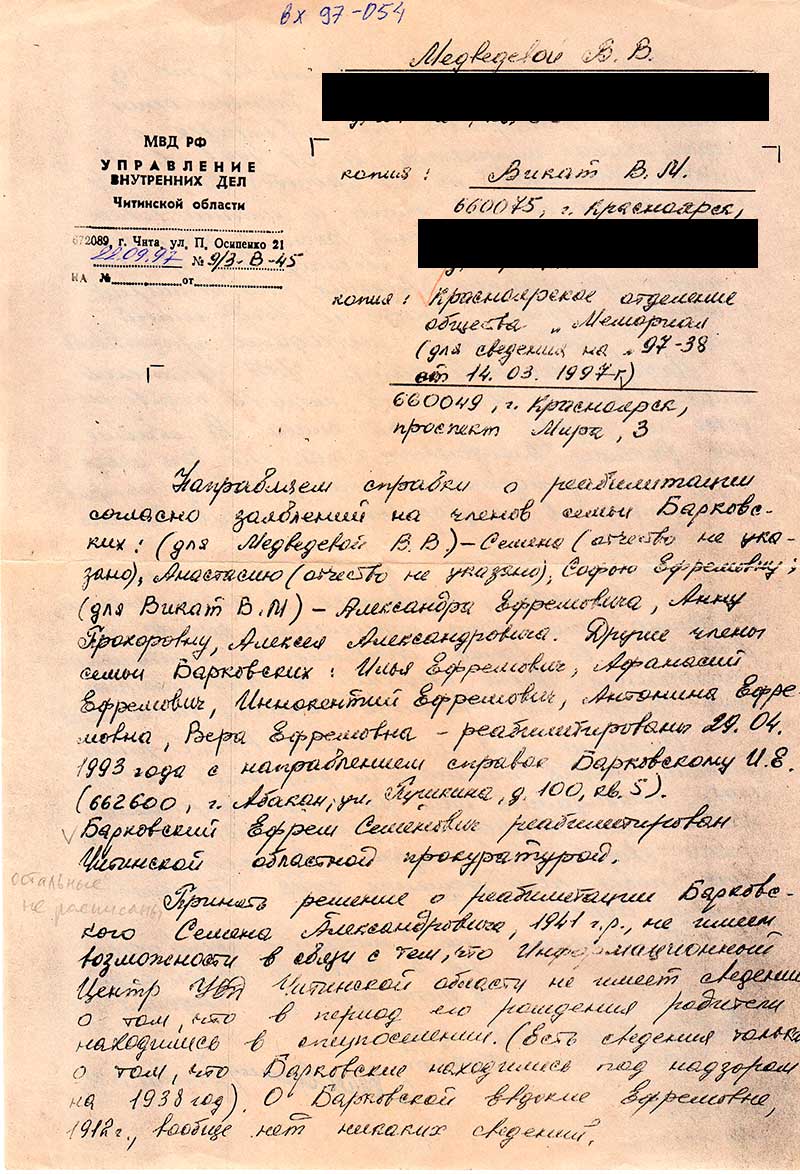 вх 97-054
Медведевой В. В.
МВД РФ
УПРАВЛЕНИЕ
ВНУТРЕННИХ ДЕЛ
Читинской области
672089, г. Чита, ул. П. Осипенко 21
22.09.97 № 9/3-В-45
НА № от
копия: Викат В.М.
660075, г. Красноярск,
копия: Красноярское отделение
общества „Мемориал
(для сведения на „97-38
от 14.03.1997г.)
660049, г. Красноярск,
проспект Мира, 3
Направляем справки о реабилитации
согласно заявлений на членов семьи Барковс-
ких: (для Медведевой В.В.) – Семена (отчество не ука-
зано), Анастасию (отчество не указано), Софью Ефремовну;
(для Викат В.М) – Александра Ефремовича, Анну
Прохоровну, Алексея Александровича. Другие члены
семьи Барковских: Илья Ефремович, Афанасий
Ефремович, Иннокентий Ефремович, Антонина Ефре-
мовна, Вера Ефремовна – реабилитированы 29.04.
1993 года с направлением справок Барковскому И.Е.
(662600, г. Абакан, ул. Пушкина, д. 100, кв. 5).
Барковский Ефрем Семенович реабилитирован
Читинской областной прокуратурой.
остальные
не расписаны
Принять решение о реабилитации Барковс-
кого Семена Александровича, 1941 г.р., не имеем
возможности в связи с тем, что Информационный
Центр УВД Читинской области не имеет сведений
о том, что в период его рождения родители
находились в спецпоселении. (Есть сведения только
о том, что Барковские находились под надзором
на 1938 год). О Барковской Евдокие Ефремовне,
1912 г., вообще нет никаких сведений.